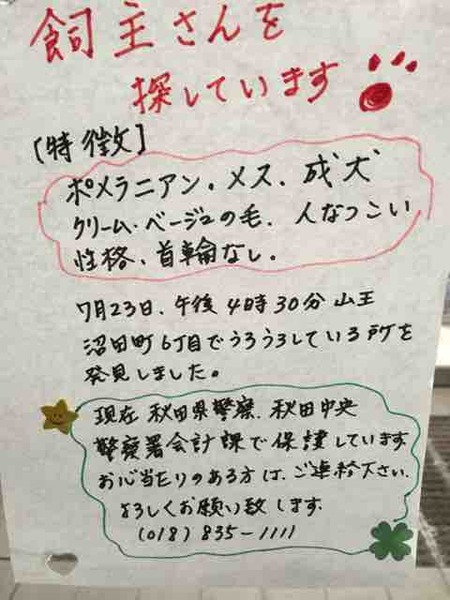 飼主さんを
探しています
[特徴]
ポメラニアン。メス、成犬
クリーム・ベージュの毛、人なつこい
性格、首輪なし。
7月23日、午後4時30分 山王
沼田町6丁目でうろうろしている所を
発見しました。
現在 秋田県警察、秋田中央
警察署会計課で保護しています
お心当たりのある方は、ご連絡下さい。
よろしくお願い致します。
(018) 835-1111